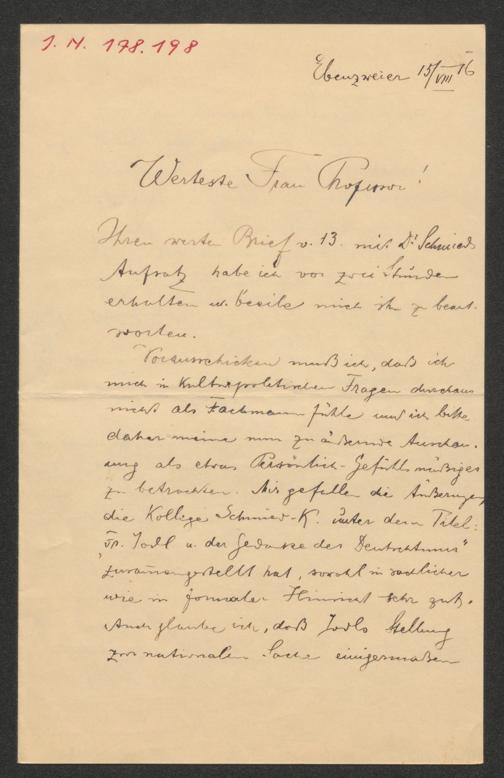 J. N. 178.198
Ebenzweier 15/VIII 16
Werteste Frau Professor!
Ihren werten Brief v. 13. mit Dr Schmieds
Aufsatz habe ich vor zwei Stunden
erhalten u. beeile mich ihn z beant-
worten.
Vorausschicken muß ich, daß ich
mich in kulturpolitischen Fragen durchaus
nicht als Fachmann fühle und ich bitte
daher meine nun zu äußernde Anschau-
ung als etwas Persönlich-Gefühlsmäßiges
zu betrachten. Mir gefallen die Äußerungen,
die Kollege Schmied-K. unter dem Titel:
"Fr. Jodl u. der Gedanke des Deutschtums"
zusammengestellt hat, sowohl in sachlicher
wie in formaler Hinsicht sehr gut.
Auch glaube ich, daß Jodls Stellung
zur nationalen Sache einigermaßen